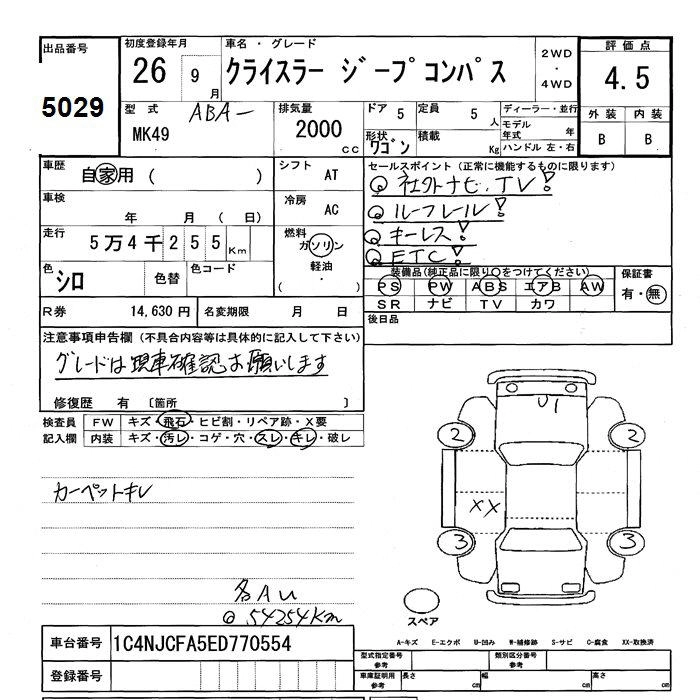 出品番号 初度登録年月 車名・グレード 2WD・4WD 評価点
5029 26 9月 クライスラー ジープコンパス 4.5
型式 ABA- 排気量 ドア 5 定員 5人 ディーラー・並行 外装 内装
MK49 2000cc 形状 ワゴン 積載 Kg モデル年式 年 ハンドル 左・右 B B
車歴 自家用 ( ) シフト AT セールスポイント (正常に機能するものに限ります)
社外ナビ.TV!
車検 年 月 (日) 冷房 AC ルーフレール!
走行 5万4千255Km 燃料 ガソリン 軽油 ( ・ ) キーレス!
ETC!
色 シロ 色替 色コード 装備品(純正品に限り○をつけてください) 保証書
PS PW ABS エアB AW 有・無
SR ナビ TV カワ
R券 14,630円 名変期限 月 日 後日品
注意事項申告欄 (不具合内容等は具体的に記入して下さい)
グレードは現車確認お願いします
修復歴 有 〔箇所 〕
検査員 FW キズ・飛石・ヒビ割・リペア跡・X要
記入欄 内装 キズ・汚レ・コゲ・穴・スレ・キレ・破レ
カーペットキレ
U1
2 2
XX
3 3
スペア
各AU
54254Km
A-キズ E-エクボ U-凹み W-補修跡 S-サビ C-腐食 XX-取換済
車台番号 1C4NJCFA5ED770554 型式指定番号 参考 類別区分番号 参考
登録番号 車庫証明用 参考 長さ cm 幅 cm 高さ cm